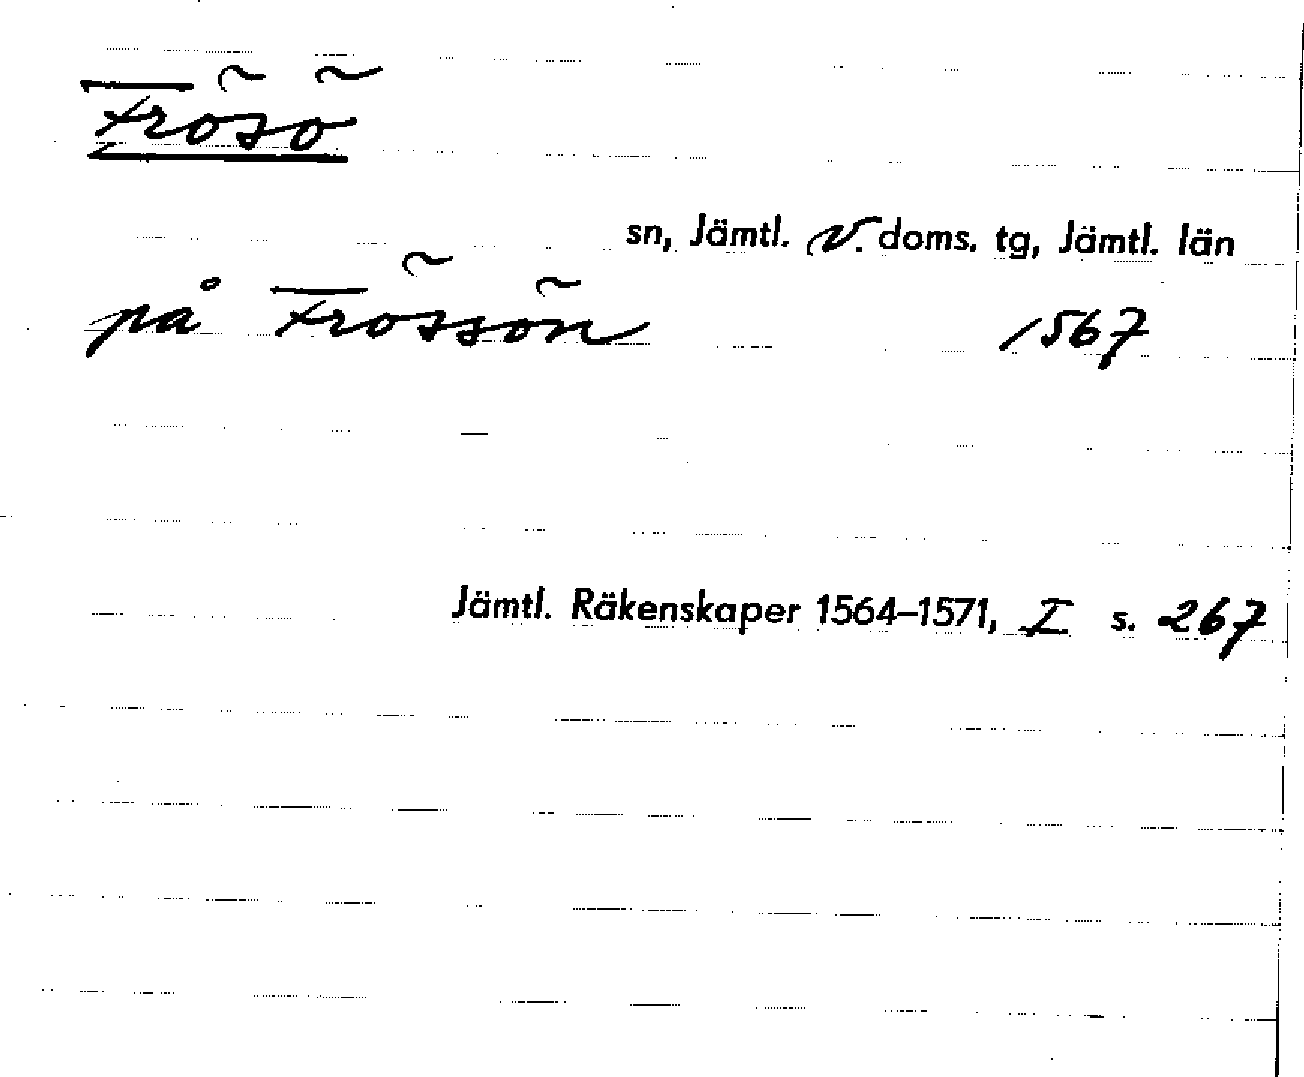 Frösö
sn, Jämtl. V. doms. tg, Jämtl. län
på Frössön 1567
Jämtl. Räkenskaper 1564–1571, I s. 267